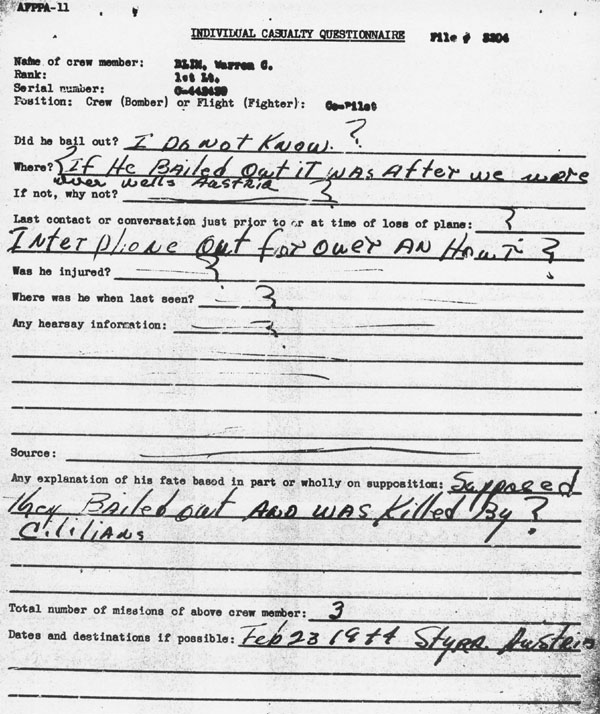 AFPPA-11
INDIVIDUAL CASUALTY QUESTIONNAIRE File # 3304
Name of crew member: BLIM, Warren G.
Rank: 1st Lt.
Serial number:
Position: Crew (Bomber) or Flight (Fighter): Co-Pilot
Did he bail out? I Do Not Know. ?
Where? If He Bailed Out it was After we were
over wells Austria
If not, why not?
Last contact or conversation just prior to or at time of loss of plane: ?
Interphone out for over AN Hour ?
Was he injured? ?
Where was he when last seen? ?
Any hearsay information: ?
Source:
Any explanation of his fate based in part or wholly on supposition: Supposed
they Bailed out AND was Killed By ?
Cililians
Total number of missions of above crew member: 3
Dates and destinations if possible: Feb 23 1944 Styrr. Austria